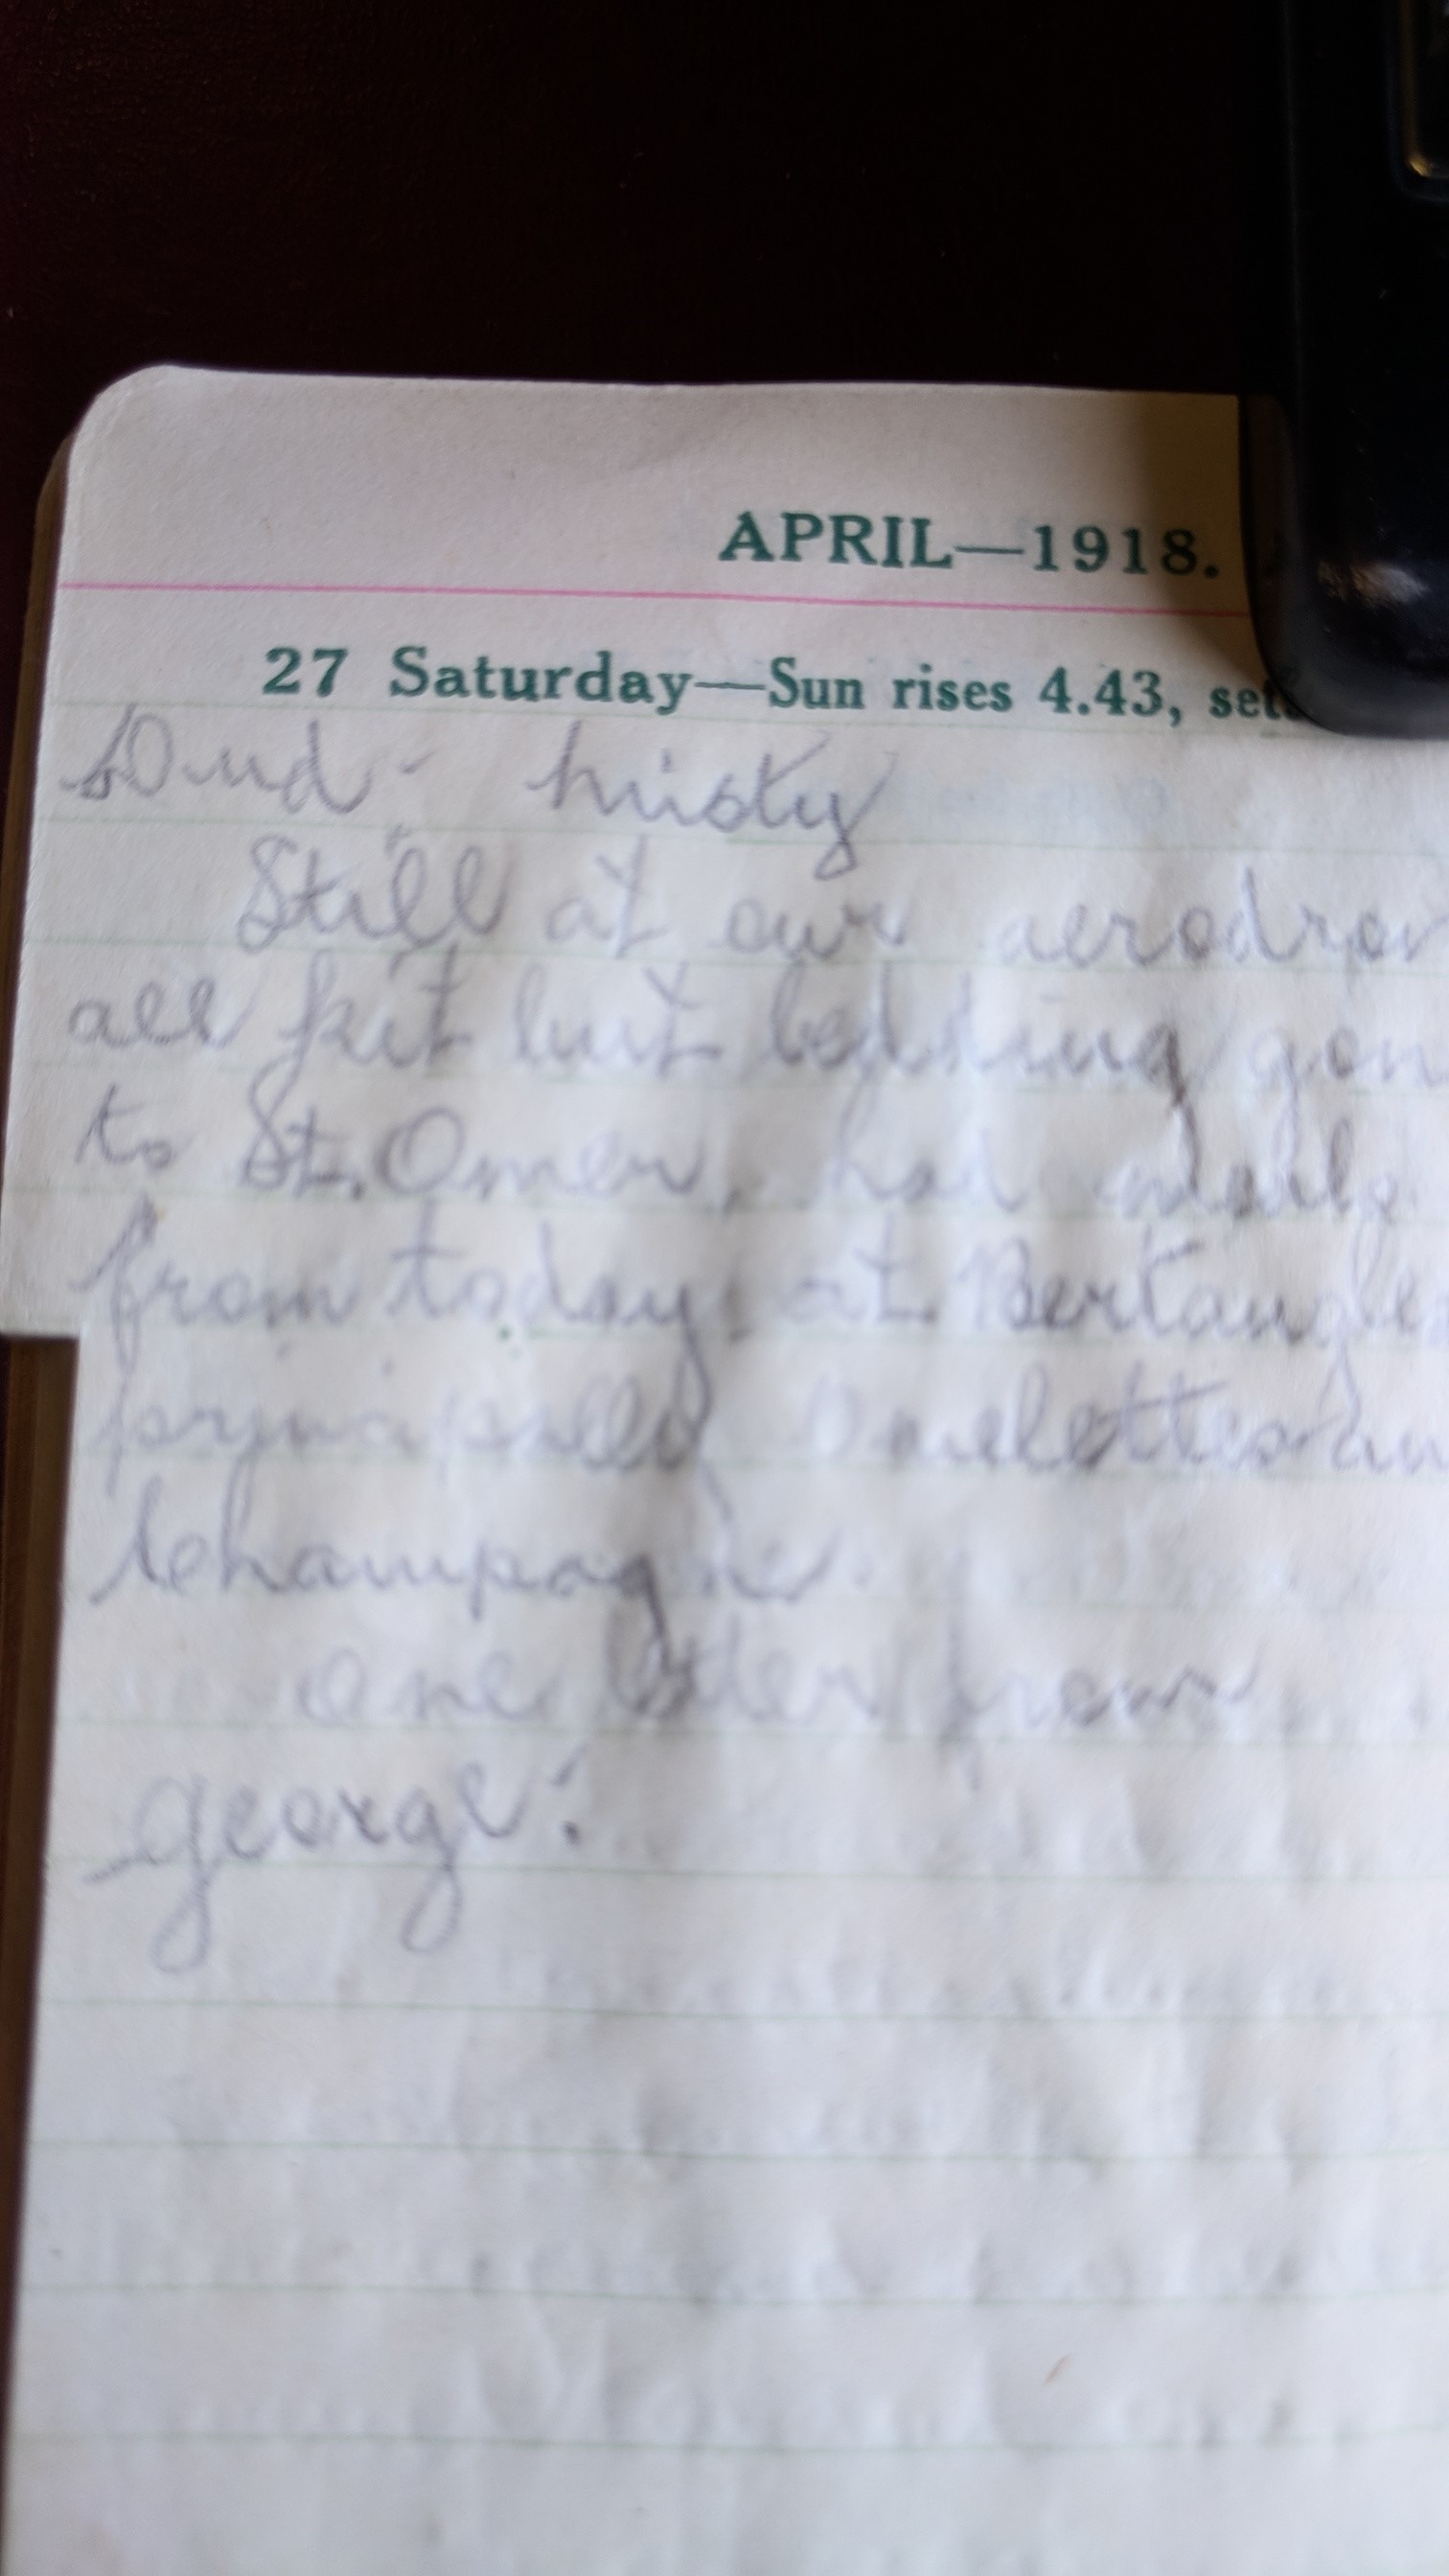 APRIL—1918.
27 Saturday—Sun rises 4.43, sets
Dud - misty
Still at our aerodrom
all kit but bedding gon
to St. Omer, had meals
from today at Bertangles
principally Omelettes an
Champagne.
One letter from
George.